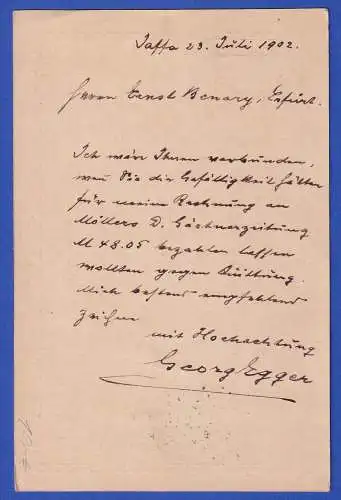 Jaffa 23. Juli 1902.
Herrn Ernst Benary, Erfurt.
Ich wäre Ihnen verbunden,
wenn Sie die Gefälligkeit hätten
für meine Rechnung an
Möllers D. Gärtnerzeitung
M 48.05 bezahlen lassen
wollten gegen Quittung.
Mich bestens empfehlend
zeichne
mit Hochachtung
Georg Egger